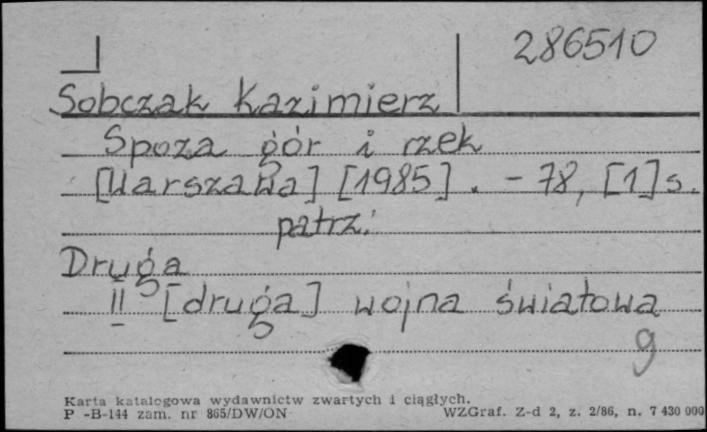 286510
Sobczak Kazimierz
Spoza gór i rzek
[Warszawa] [1985]. - 78, [1] s.
patrz:
Druga
II [druga] wojna światowa
g
Karta katalogowa wydawnictw zwartych i ciągłych.
P -B-144 zam. nr 865/DW/ON WZGraf. Z-d 2, z. 2/86, n. 7 430 000